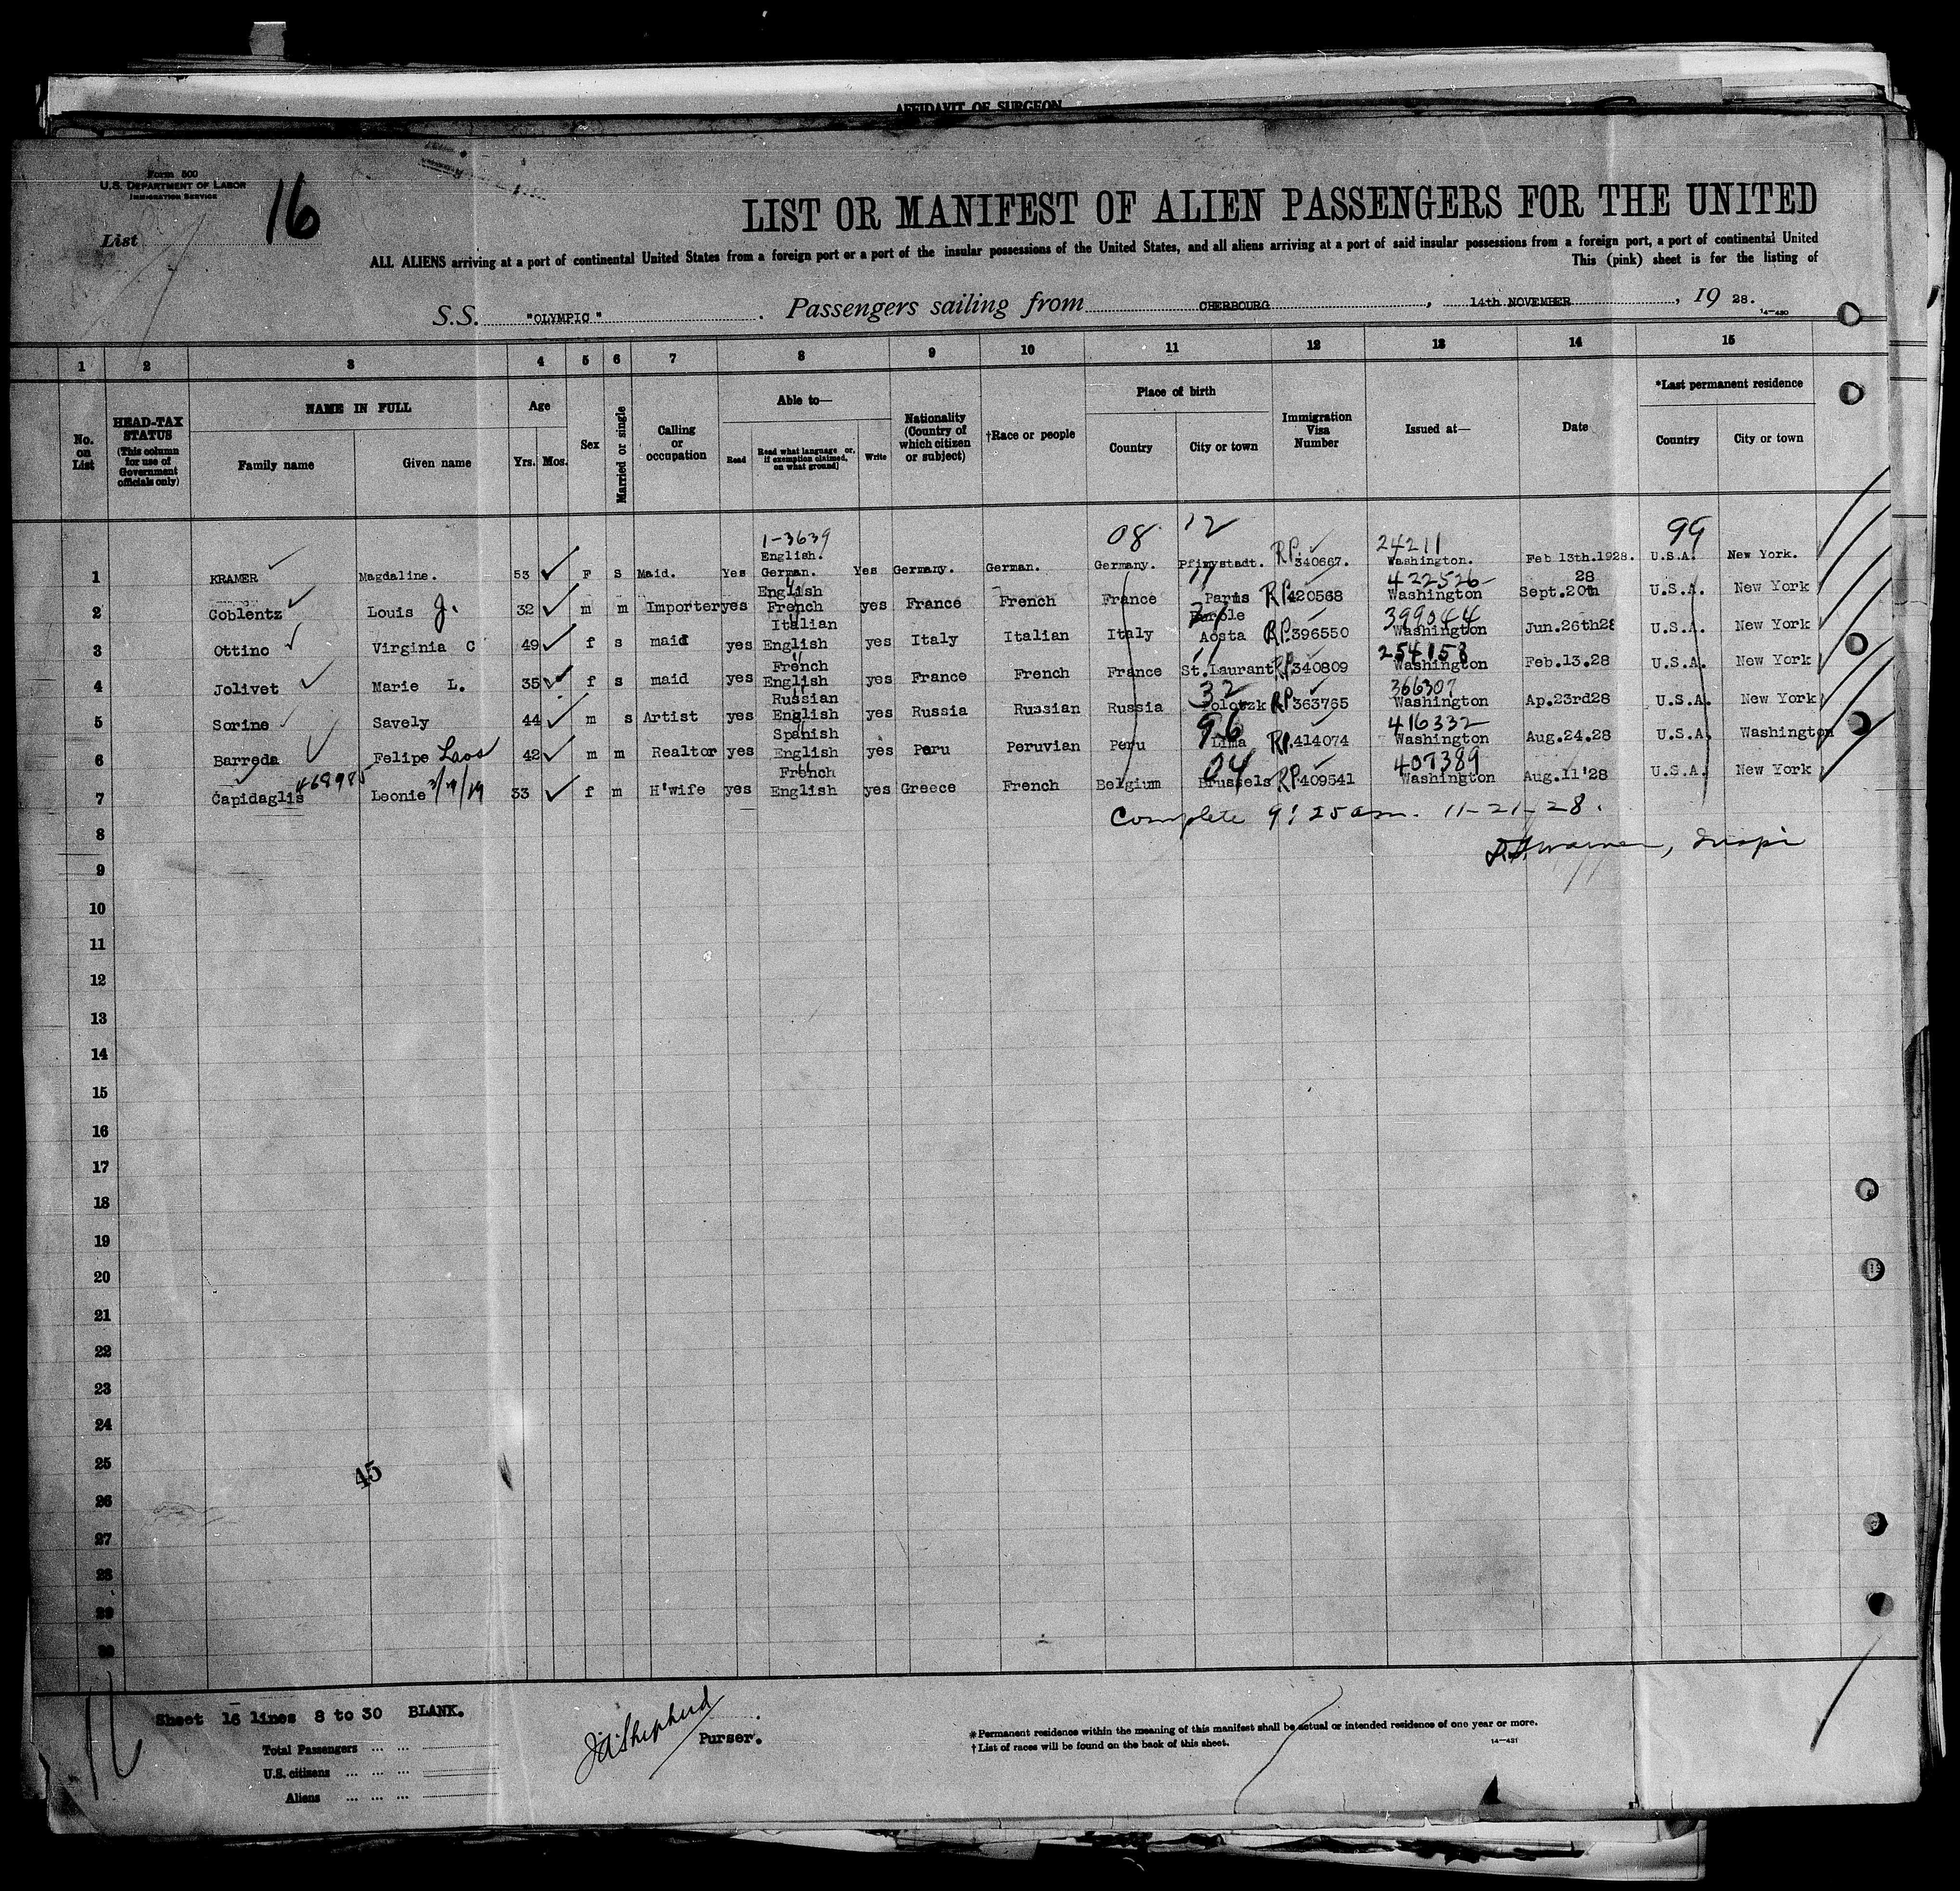 AFFIDAVIT OF SURGEON
Form 500
U.S. DEPARTMENT OF LABOR
IMMIGRATION SERVICE
List 16
LIST OR MANIFEST OF ALIEN PASSENGERS FOR THE UNITED
ALL ALIENS arriving at a port of continental United States from a foreign port or a port of the insular possessions of the United States, and all aliens arriving at a port of said insular possessions from a foreign port, a port of continental United
This (pink) sheet is for the listing of
S.S. "OLYMPIC" Passengers sailing from CHERBOURG, 14th NOVEMBER, 19 28.
14-430
1 2 3 4 5 6 7 8 9 10 11 12 13 14 15
No. on List
HEAD-TAX STATUS (This column for use of Government officials only)
NAME IN FULL
Family name Given name
Age
Yrs. Mos.
Sex
Married or single
Calling or occupation
Able to—
Read Read what language or, if exemption claimed, on what ground) Write
Nationality (Country of which citizen or subject)
†Race or people
Place of birth
Country City or town
Immigration Visa Number
Issued at—
Date
*Last permanent residence
Country City or town
1-3639 08 12 24211 99
English.
1 KRAMER Magdaline. 53 F S Maid. Yes German. Yes Germany. German. Germany. RP 340667. Washington. Feb 13th.1928. U.S.A. New York.
English 11 422526 28
2 Coblentz Louis J. 32 m m Importer yes French yes France French France Paris RP 420568 Washington Sept.20th U.S.A. New York
Italian 399044
3 Ottino Virginia C 49 f s maid yes English yes Italy Italian Italy Aosta RP 396550 Washington Jun.26th28 U.S.A. New York
French 11 254158
4 Jolivet Marie L. 35 f s maid yes English yes France French France St.Laurant RP 340809 Washington Feb.13.28 U.S.A. New York
Russian 32 366307
5 Sorine Savely 44 m s Artist yes English yes Russia Russian Russia Polotzk RP 363765 Washington Ap.23rd28 U.S.A. New York
Spanish 96 416332
6 Barreda Felipe Laos 42 m m Realtor yes English yes Peru Peruvian Peru Lima RP 414074 Washington Aug.24.28 U.S.A. Washington
468985 French 04 407389
7 Capidaglis Leonie 33 f m H'wife yes English yes Greece French Belgium Brussels RP 409541 Washington Aug.11'28 U.S.A. New York
Complete 9:25 am. 11-21-28.
8
9
10
11
12
13
14
15
16
17
18
19
20
21
22
23
24
25
45
26
27
28
29
30
Sheet 16 lines 8 to 30 BLANK.
Total Passengers ... ...
U.S. citizens ... ... ...
Aliens ... ... ...
J A Shepherd
Purser.
*Permanent residence within the meaning of this manifest shall be actual or intended residence of one year or more.
†List of races will be found on the back of this sheet.
14-431